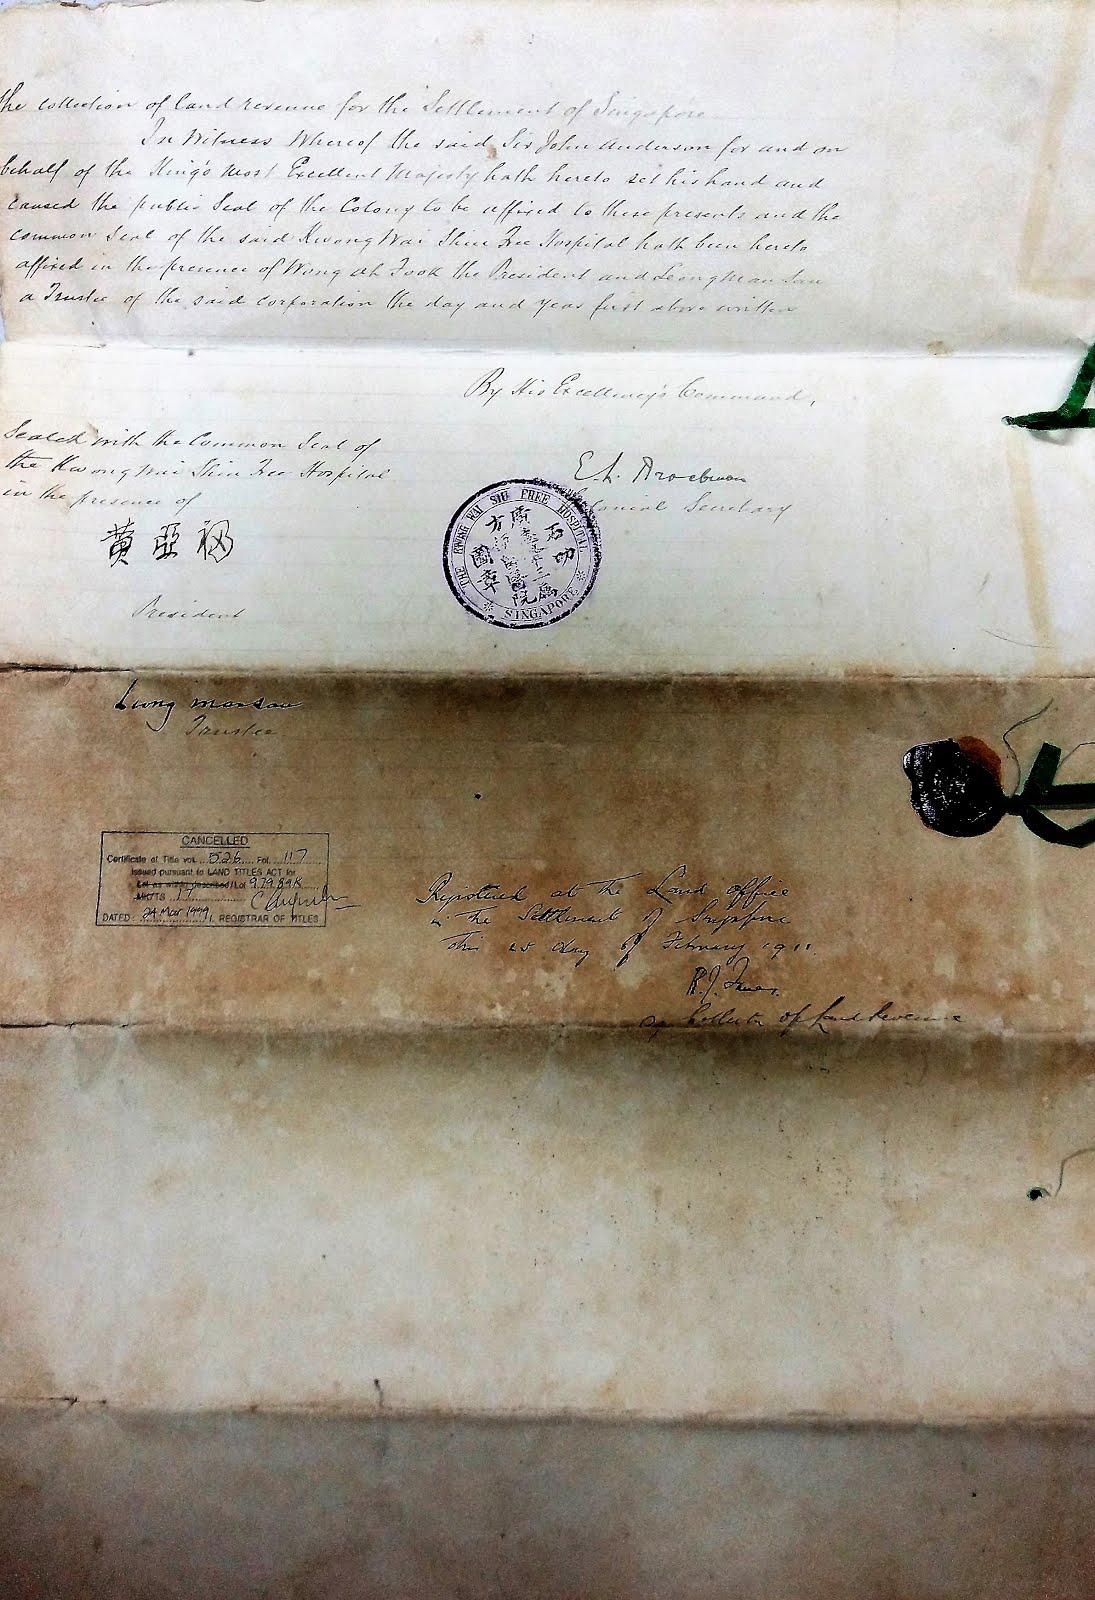 the collection of land revenue for the Settlement of Singapore
In Witness Whereof the said Sir John Anderson for and on
behalf of the King's Most Excellent Majesty hath hereto set his hand and
caused the public Seal of the Colony to be affixed to these presents and the
common Seal of the said Kwong Wai Shiu Free Hospital hath been hereto
affixed in the presence of Wong Ah Fook the President and Leong Man Sau
a Trustee of the said corporation the day and year first above written
By His Excellency's Command,
Sealed with the Common Seal of
the Kwong Wai Shiu Free Hospital
in the presence of
黄亞福
President
E. L. Brockman
Colonial Secretary
THE KWONG WAI SHIU FREE HOSPITAL
SINGAPORE
廣
方
三属
醫院
圖章
Leong man sau
Trustee
CANCELLED
Certificate of Title vol. 526 Fol. 117
issued pursuant to LAND TITLES ACT for
Lot as within described/Lot 979.89K
MK/TS 17
DATED: 24 Mar 1999 REGISTRAR OF TITLES
Registered at the Land office
in the Settlement of Singapore
this 25 day of February 1911.
R. J.
Ag Collector of Land Revenue